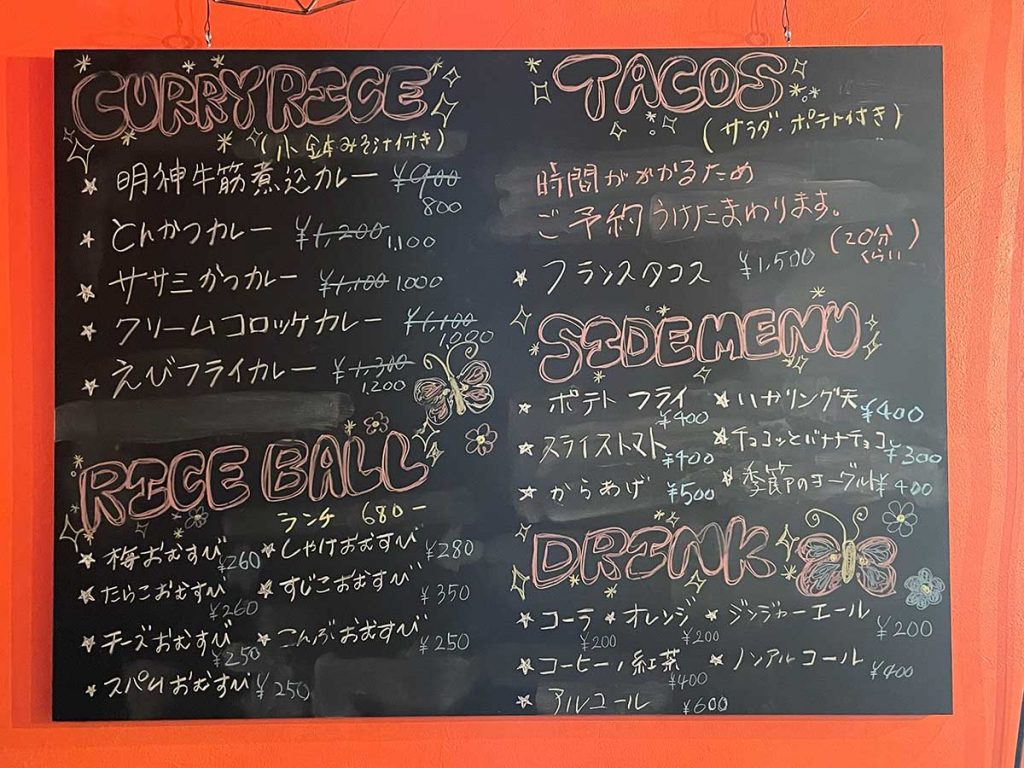 CURRY RICE
(小鉢みそ汁付き)
明神牛筋煮込カレー ¥900 800
とんかつカレー ¥1,200 1,100
ササミかつカレー ¥1,100 1,000
クリームコロッケカレー ¥1,100 1,000
えびフライカレー ¥1,300 1,200
RICE BALL
ランチ 680-
梅おむすび ¥260 しゃけおむすび ¥280
たらこおむすび ¥260 すじこおむすび ¥350
チーズおむすび ¥250 こんぶおむすび ¥250
スパムおむすび ¥250
TACOS
(サラダ・ポテト付き)
時間がかかるため
ご予約うけたまわります。
(20分くらい)
フランスタコス ¥1,500
SIDE MENU
ポテトフライ ¥400 いかリング天 ¥400
スライストマト ¥400 チョコッとバナナチョコ ¥300
からあげ ¥500 季節のヨーグルト ¥400
DRINK
コーラ ¥200 オレンジ ¥200 ジンジャーエール ¥200
コーヒー/紅茶 ¥400 ノンアルコール ¥400
アルコール ¥600